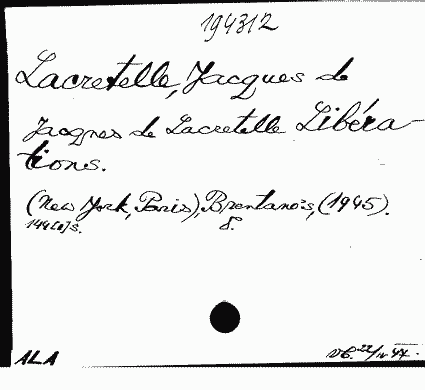 194312
Lacretelle, Jacques de
Jacques de Lacretelle Libéra-
tions.
(New York, Paris), Brentano's, (1945).
144[1]s. 8°.
ALA